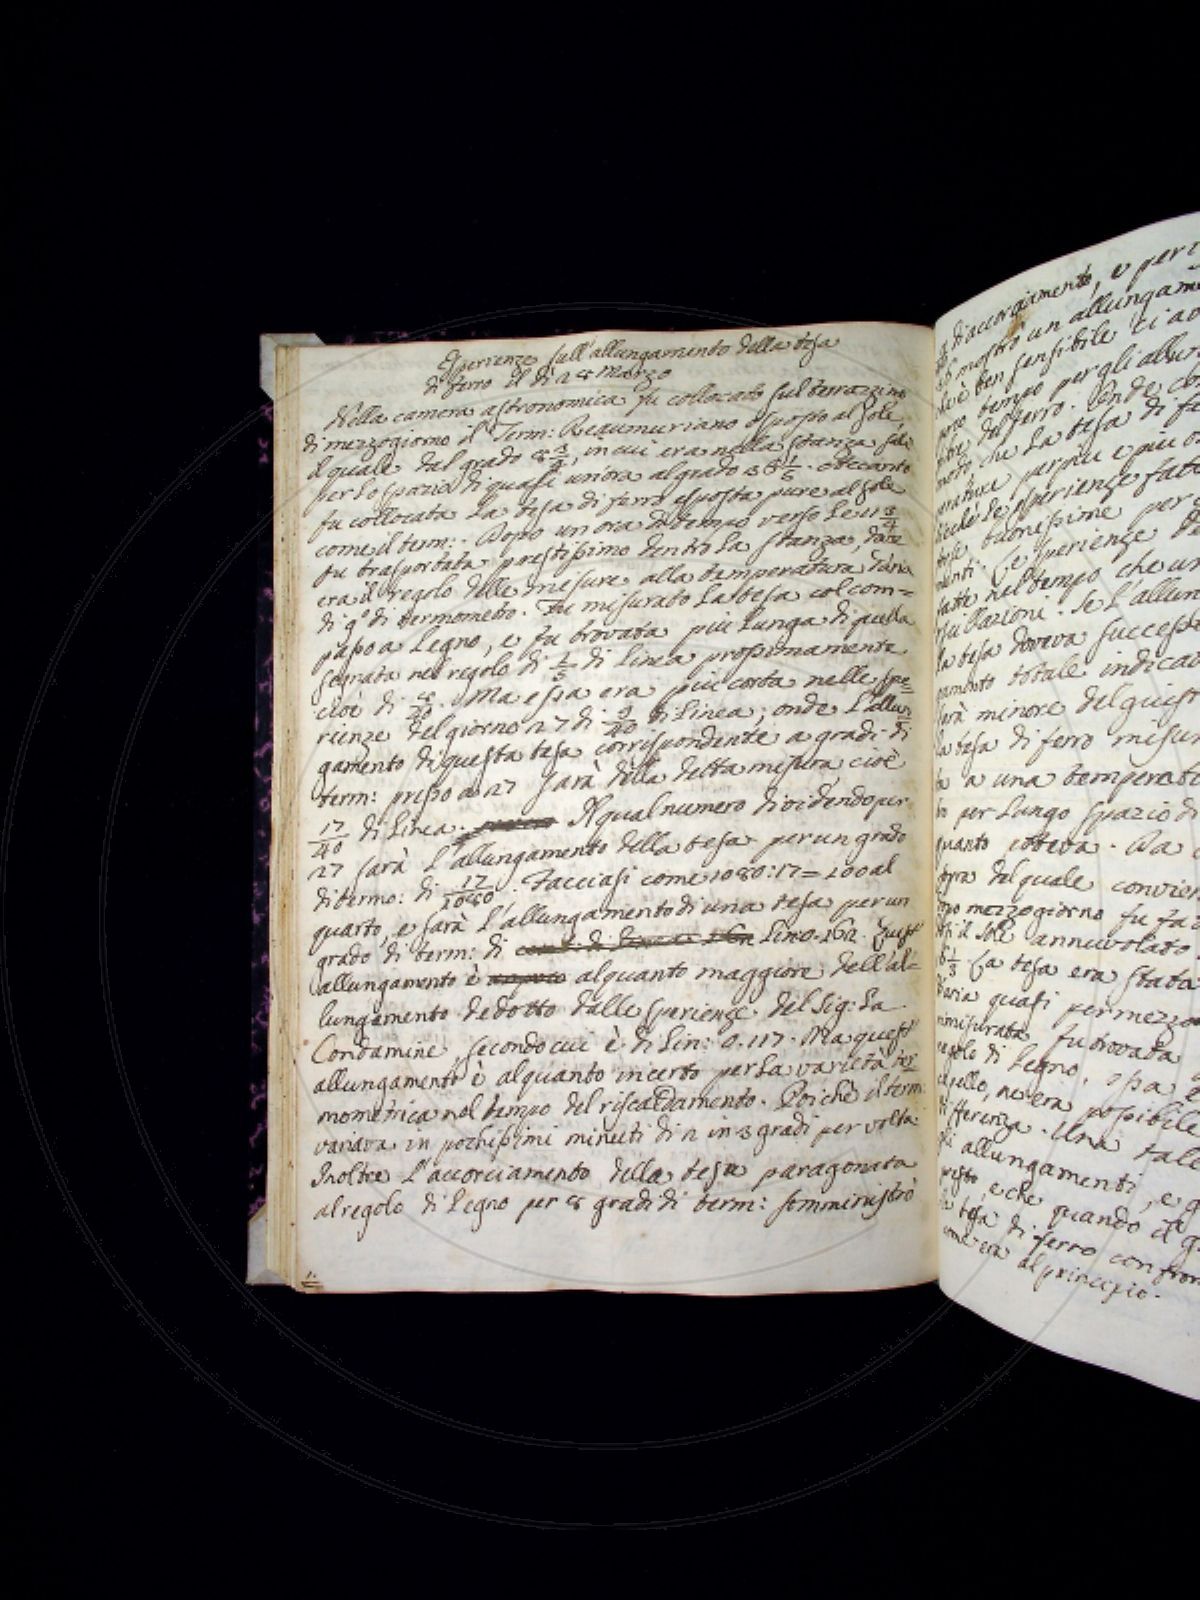 Esperienze sull'allungamento della tesa
di ferro il dì 28 Marzo
Nella camera astronomica fu collocato sul terrazzino
di mezzogiorno il Term: Reaumuriano esposto al sole,
il quale dal grado 8 3/4, in cui era nella stanza salì
per lo spazio di quasi un'ora al grado 36 1/5. Accanto
fu collocata la tesa di ferro esposta pure al sole
come il term:. Dopo un ora di tempo verso le 11 3/4
fu trasportata prestissimo dentro la stanza, dove
era il regolo delle misure alla temperatura d'aria
di 9° di termometro. Fu misurata la tesa col com=
passo a Legno, e fu trovata più lunga di quella
segnata nel regolo di 1/5 di Linea prossimamente
cioè di 8/40. Ma essa era più corta nelle spe=
rienze del giorno 27 di 9/40 di Linea; onde l'allun
gamento di questa tesa corrispondente a gradi di
term: presso a 27 sarà della detta misura cioè
17/40 di Linea. Il qual numero dividendo per
27 sarà l'allungamento della tesa per un grado
di termo: di 17/1080. Facciasi come 1080:17=100 al
quarto, e sarà l'allungamento di una tesa per un
grado di term: di Lin 0.162. Quest'
allungamento è alquanto maggiore dell'al=
lungamento dedotto dalle sperienze del Sig: La
Condamine, secondo cui è di Lin: 0.117. Ma quest'
allungamento è alquanto incerto per la varietà ter
mometrica nel tempo del riscaldamento. Poichè il term:
variava in pochissimi minuti di 2 in 3 gradi per volta
Inoltre l'accorciamento della tesa paragonata
al regolo di Legno per 8 gradi di term: somministrò
di accorciamento, e per
mostrò un allungam
è ben sensibile
tempo per gli allun
del ferro. Onde
che la tesa di fe
per più e più
le sperienze fatte
buonissime per
Le sperienze
fatte nel tempo che un
oscillazioni. Se l'allun
la tesa doveva success
gamento totale indica
sarà minore del giust
la tesa di ferro misur
a una temperat
per lungo spazio di
quanto
del quale convien
mezzogiorno fu fa
il sole annuvolato
6 1/3. La tesa era stata
d'aria quasi per mezzo
misurata fu trovata
regolo di Legno, essa
ne era possibile
differenza. Una tal
allungamenti, e
presto, e che quando
tesa di ferro confron
come era al principio.